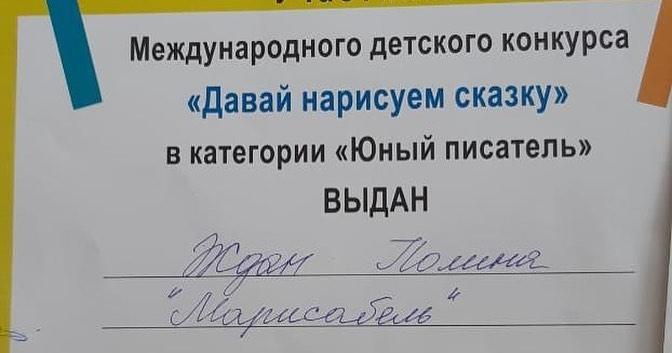 Международного детского конкурса
«Давай нарисуем сказку»
в категории «Юный писатель»
ВЫДАН
Ждан Полина
"Марисабель"